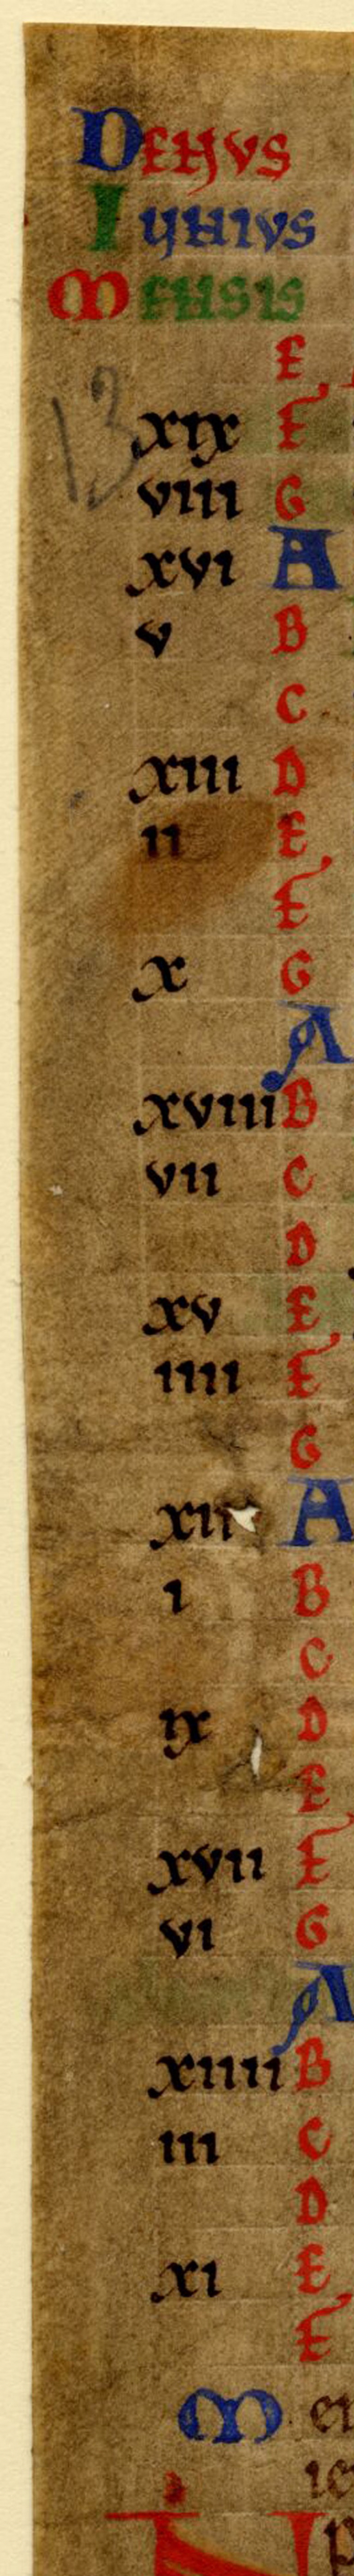 DENVS
IVNIVS
MENSIS
E
13
xix F
viii G
xvi A
v B
C
xiii D
ii E
F
x G
A
xviii B
vii C
D
xv E
iiii F
G
xii A
i B
C
ix D
E
xvii F
vi G
A
xiiii B
iii C
D
xi E
F
M